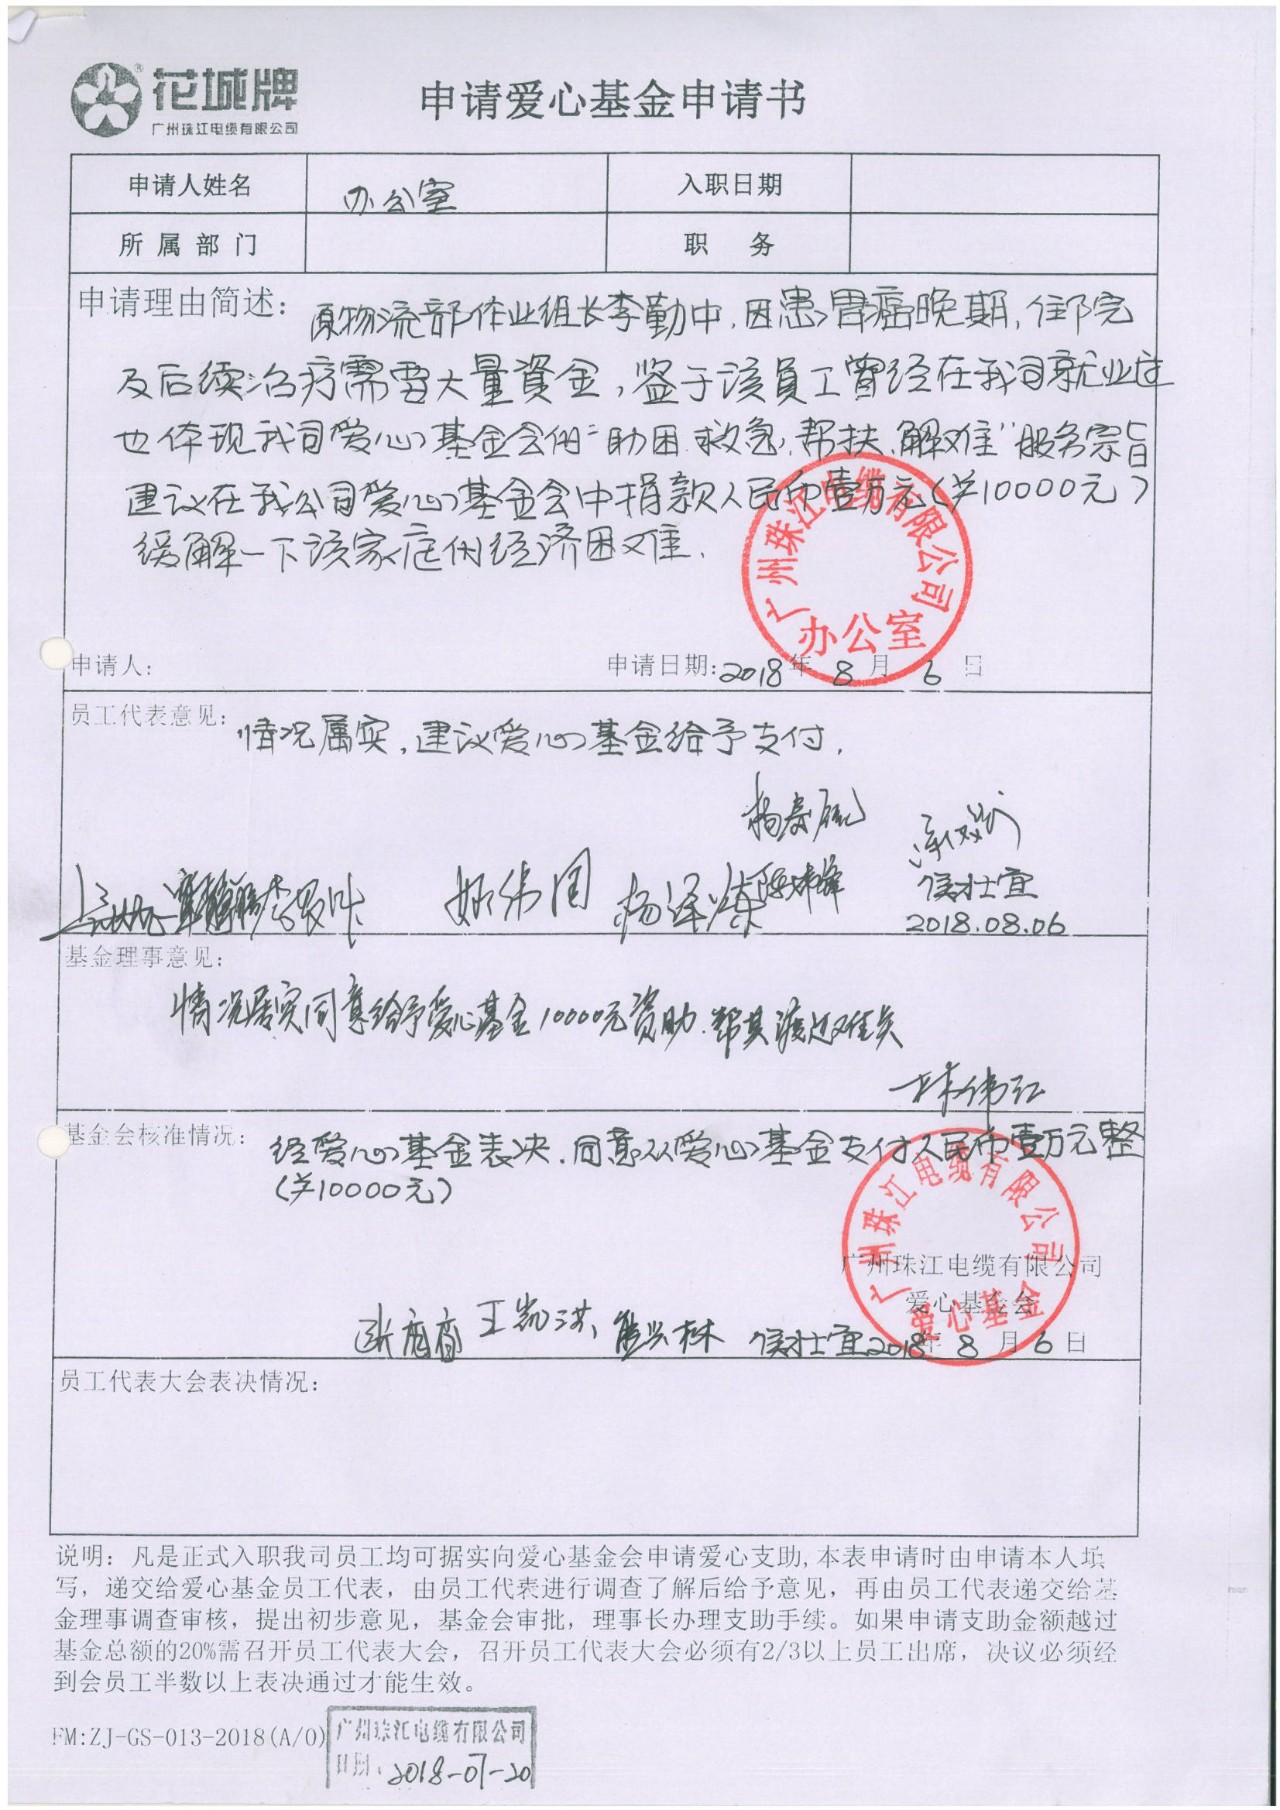 花城牌
广州珠江电缆有限公司
申请爱心基金申请书
申请人姓名 办公室 入职日期
所属部门 职 务
申请理由简述：原物流部作业组长李勤中,因患胃癌晚期,住院
及后续治疗需要大量資金,鉴于该員工曾经在我司就业过
也体现我司爱心基金会的"助困.救急,帮扶.解难"服务宗旨
建议在我公司爱心基金会中捐款人民币壹万元(¥10000元)
缓解一下该家庭的经济困难.
广州珠江电缆有限公司
办公室
申请人: 申请日期:2018年8月6日
员工代表意见: 情况属实,建议爱心基金给予支付.
侯壮宜
2018.08.06
基金理事意见:
情况属实同意给予爱心基金10000元资助.帮其渡过难关
林伟红
基金会核准情况: 经爱心基金表决.同意从爱心基金支付人民币壹万元整
(¥10000元)
广州珠江电缆有限公司
爱心基金
广州珠江电缆有限公司
爱心基金会
侯壮宜2018年8月6日
员工代表大会表决情况:
说明: 凡是正式入职我司员工均可据实向爱心基金会申请爱心支助,本表申请时由申请本人填
写，递交给爱心基金员工代表，由员工代表进行调查了解后给予意见，再由员工代表递交给基
金理事调查审核，提出初步意见，基金会审批，理事长办理支助手续。如果申请支助金额越过
基金总额的20%需召开员工代表大会，召开员工代表大会必须有2/3以上员工出席，决议必须经
到会员工半数以上表决通过才能生效。
FM:ZJ-GS-013-2018(A/0)
广州珠江电缆有限公司
日期: 2018-07-20